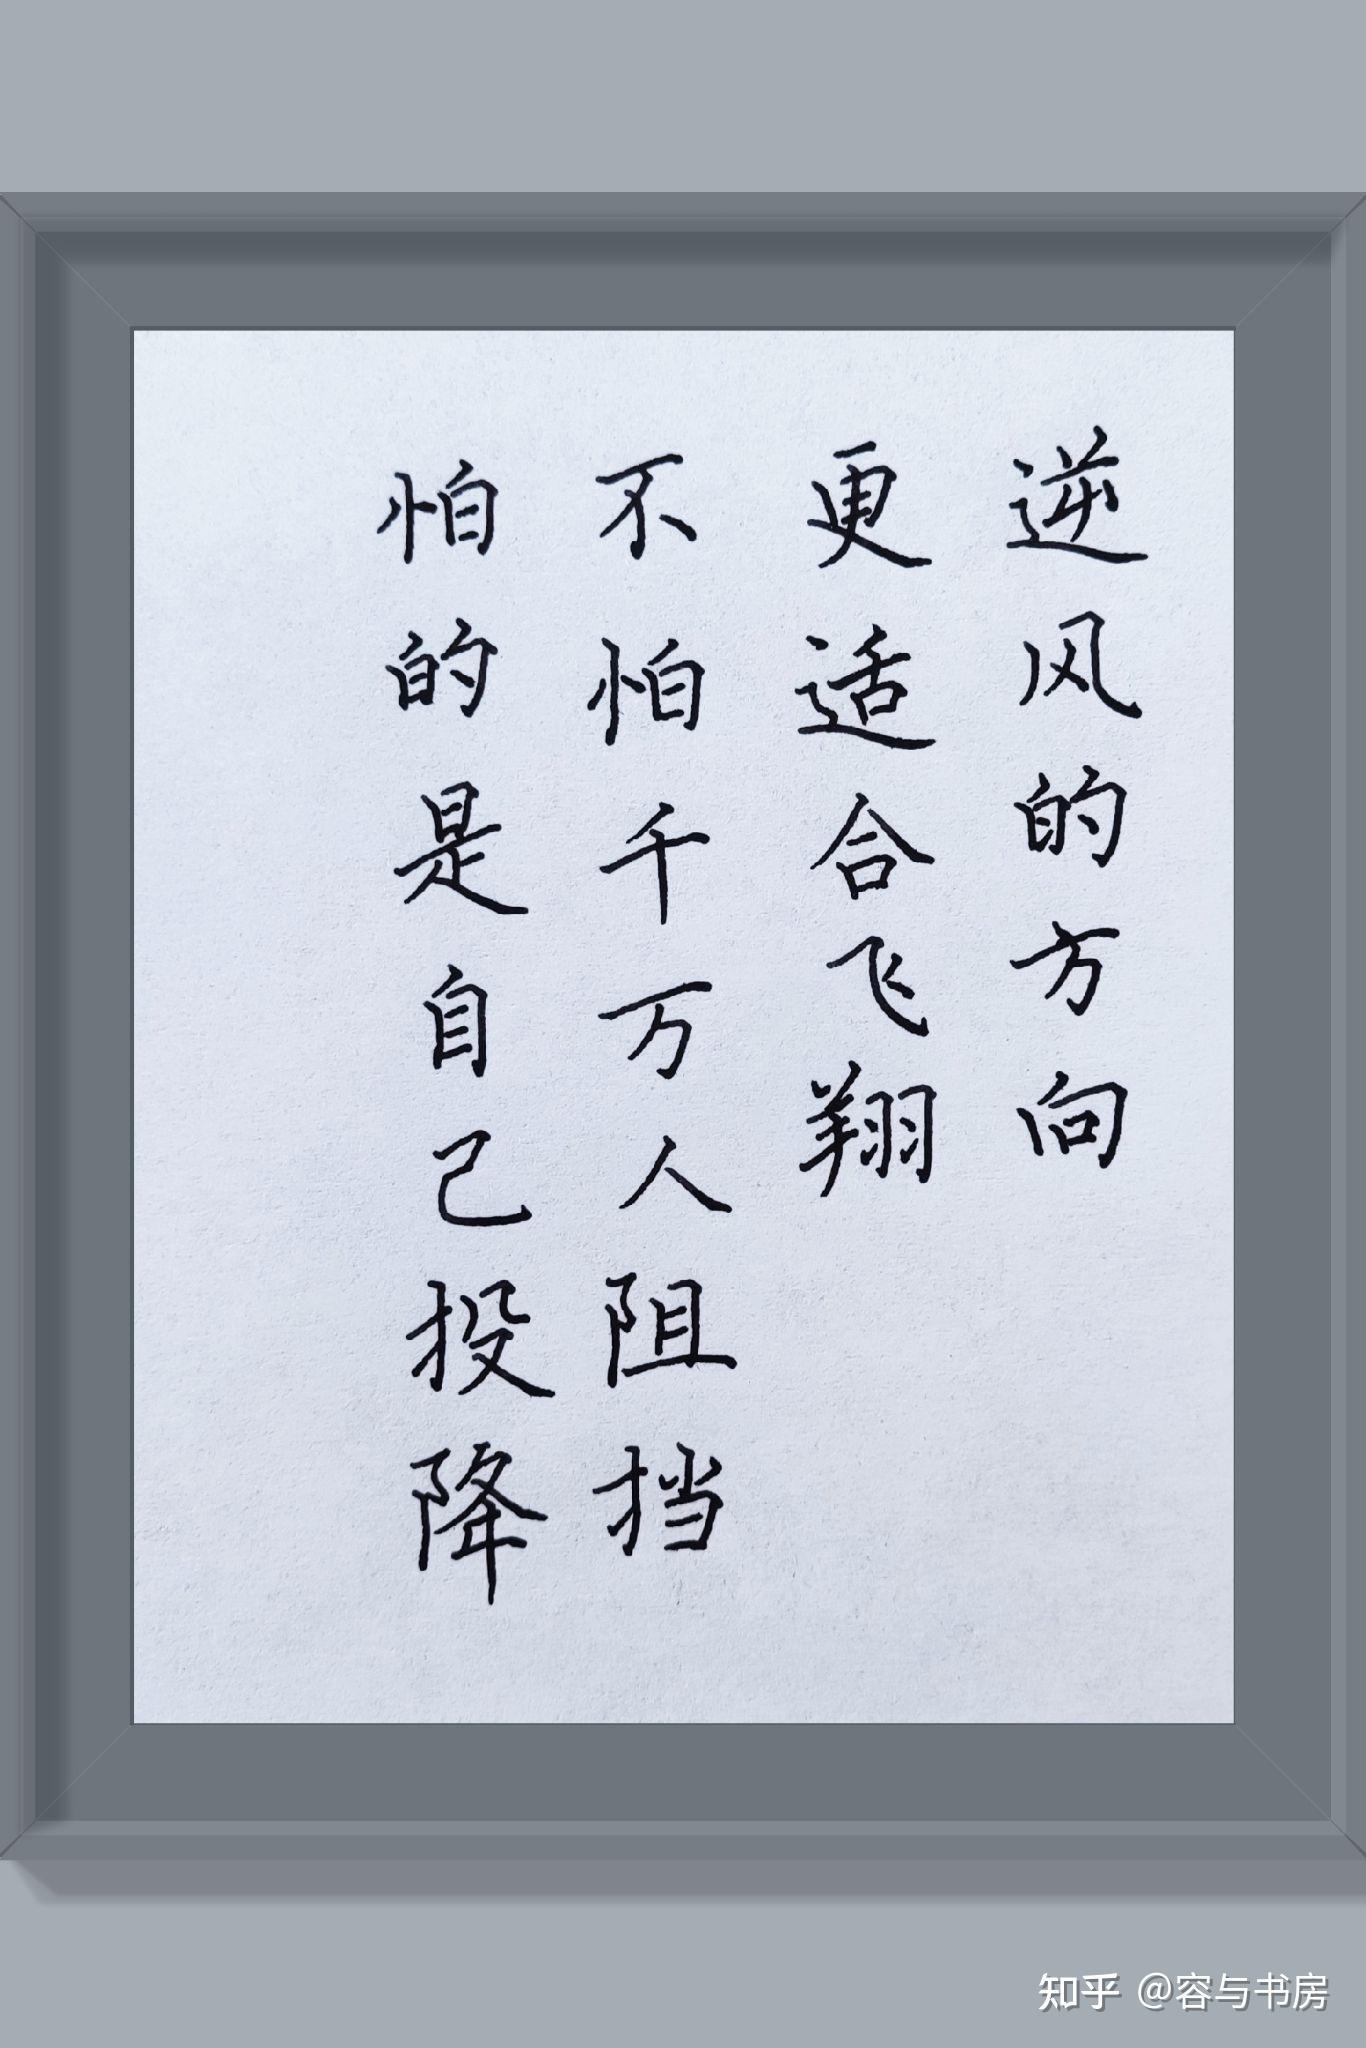 逆风的方向
更适合飞翔
不怕千万人阻挡
怕的是自己投降
知乎 @容与书房